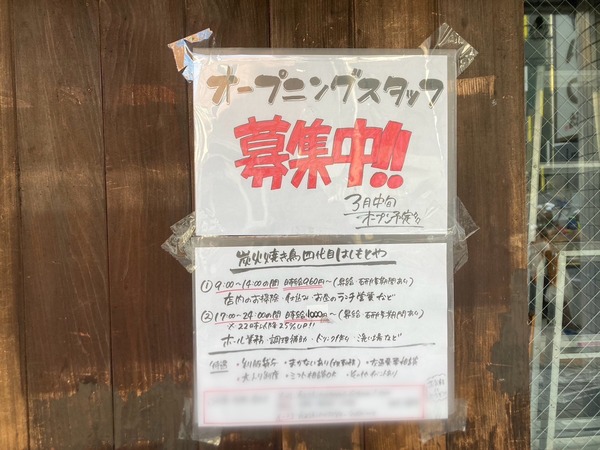 オープニングスタッフ
募集中!!
3月中旬
オープン予定!!
炭火焼き鳥 四代目はしもとや
① 9:00〜14:00の間 時給960円〜(昇給 研修期間あり)
店内のお掃除・仕込み・お昼のランチ営業など
② 17:00〜24:00の間 時給1000円〜(昇給 研修期間あり)
※22時以降25%UP!!
ホール業務・調理補助・ドリンク作り・洗い場など
待遇 ・制服貸与 ・まかないあり
・大入り制度 ・シフト相談OK